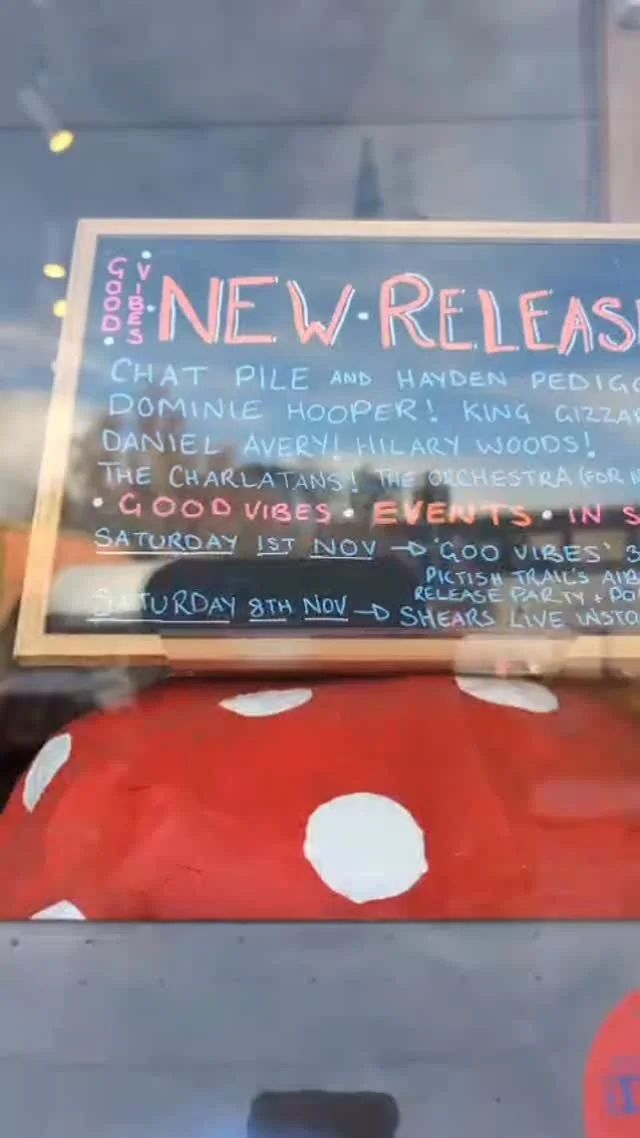 GOOD
VIBES
NEW RELEAS
CHAT PILE AND HAYDEN PEDIG
DOMINIE HOOPER! KING GIZZAR
DANIEL AVERY! HILARY WOODS!
THE CHARLATANS! THE ORCHESTRA (FOR
GOOD VIBES • EVENTS • IN S
SATURDAY 1ST NOV → 'GOO VIBES' 3
PICTISH TRAIL'S
RELEASE PARTY +
SATURDAY 8TH NOV → SHEARS LIVE INSTO